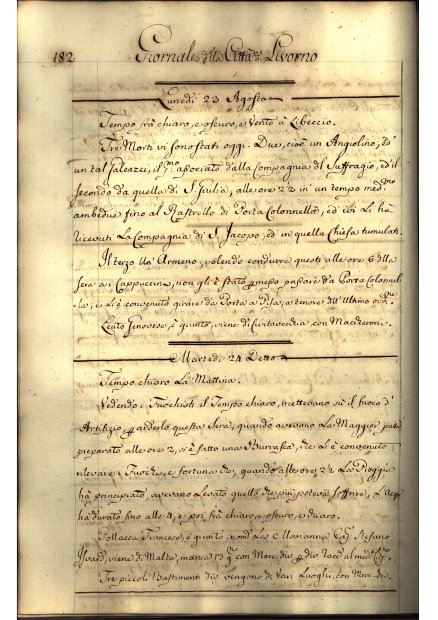 182 Giornale della Città di Livorno
Lunedì 23 Agosto
Tempo frà chiaro, e oscuro, e Vento à Libeccio.
Tre Morti vi sono stati oggi. Due, cioè un Angiolino, ed'
un tal Galeazzi, il p.mo asociato dalla Compagnia del Suffragio, ed il
secondo da quella di S. Giulia, alle ore 22 in un tempo med.mo
ambedue fino al Rastrello di Porta Colonnella, ed in Li hà
ricevuti La Compagnia di S. Jacopo, ed in quella Chiesa tumulati.
Il terzo Un' Armeno, volendo condurre questi alle ore 6 della
Sera a i Cappuccini, non gli è stato permeso pasare da Porta Colonnel-
la, e Li è convenuto girare da Porta a Pisa, a tenore dell' Ultimo
Leuto Genovese, è giunto, viene di Civitavecchia, con Maccheroni.
Martedì 24 Detto
Tempo chiaro La Mattina.
Vedendo i Fuochisti il Tempo chiaro, mettevano sù il fuoco d'
Artifizio per arderlo questa Sera, quando avevano La Maggior parte
preparato alle ore 2, si è fatto una Burrasca, che Li è convenuto
rilevare i Fuochi, e fortuna che, quando alle ore 22 La Pioggia
hà principiato, avevano Levato quello che più poteva soffrire, L'Acqua
hà durato fino alle 4, e poi frà chiaro, e oscuro, e chiaro.
Pollacca Francese, è giunta, nom.a La Cap. Stefano
viene di Malta, manca 13 g. con Merc. che per
Tre piccoli Bastimenti che vengono di Vari Luoghi, con Merc. che.